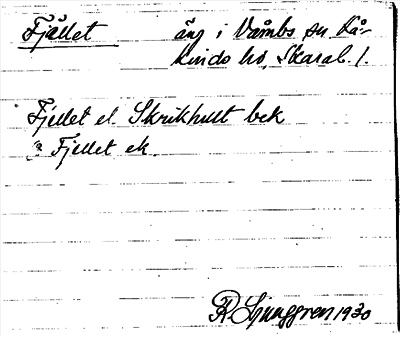 Fjället äng i Våmbs sn Kå-
kinds hd, Skarab. l.
Fjellet el Skrikhult bek
? Fjellet ek.
R Ljunggren 1930